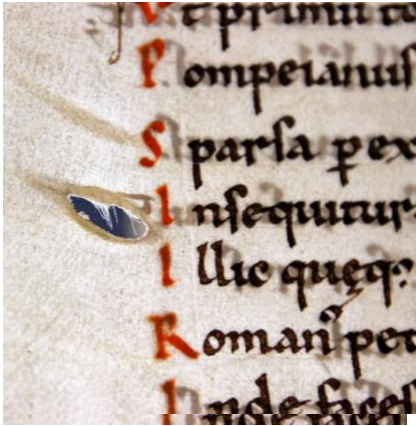 Vt primu ca
Pompeianuſ
Sparſa ꝑ ex
Inſequitur
Illic quęq:
Romanꝰ pet
Inde faceſ